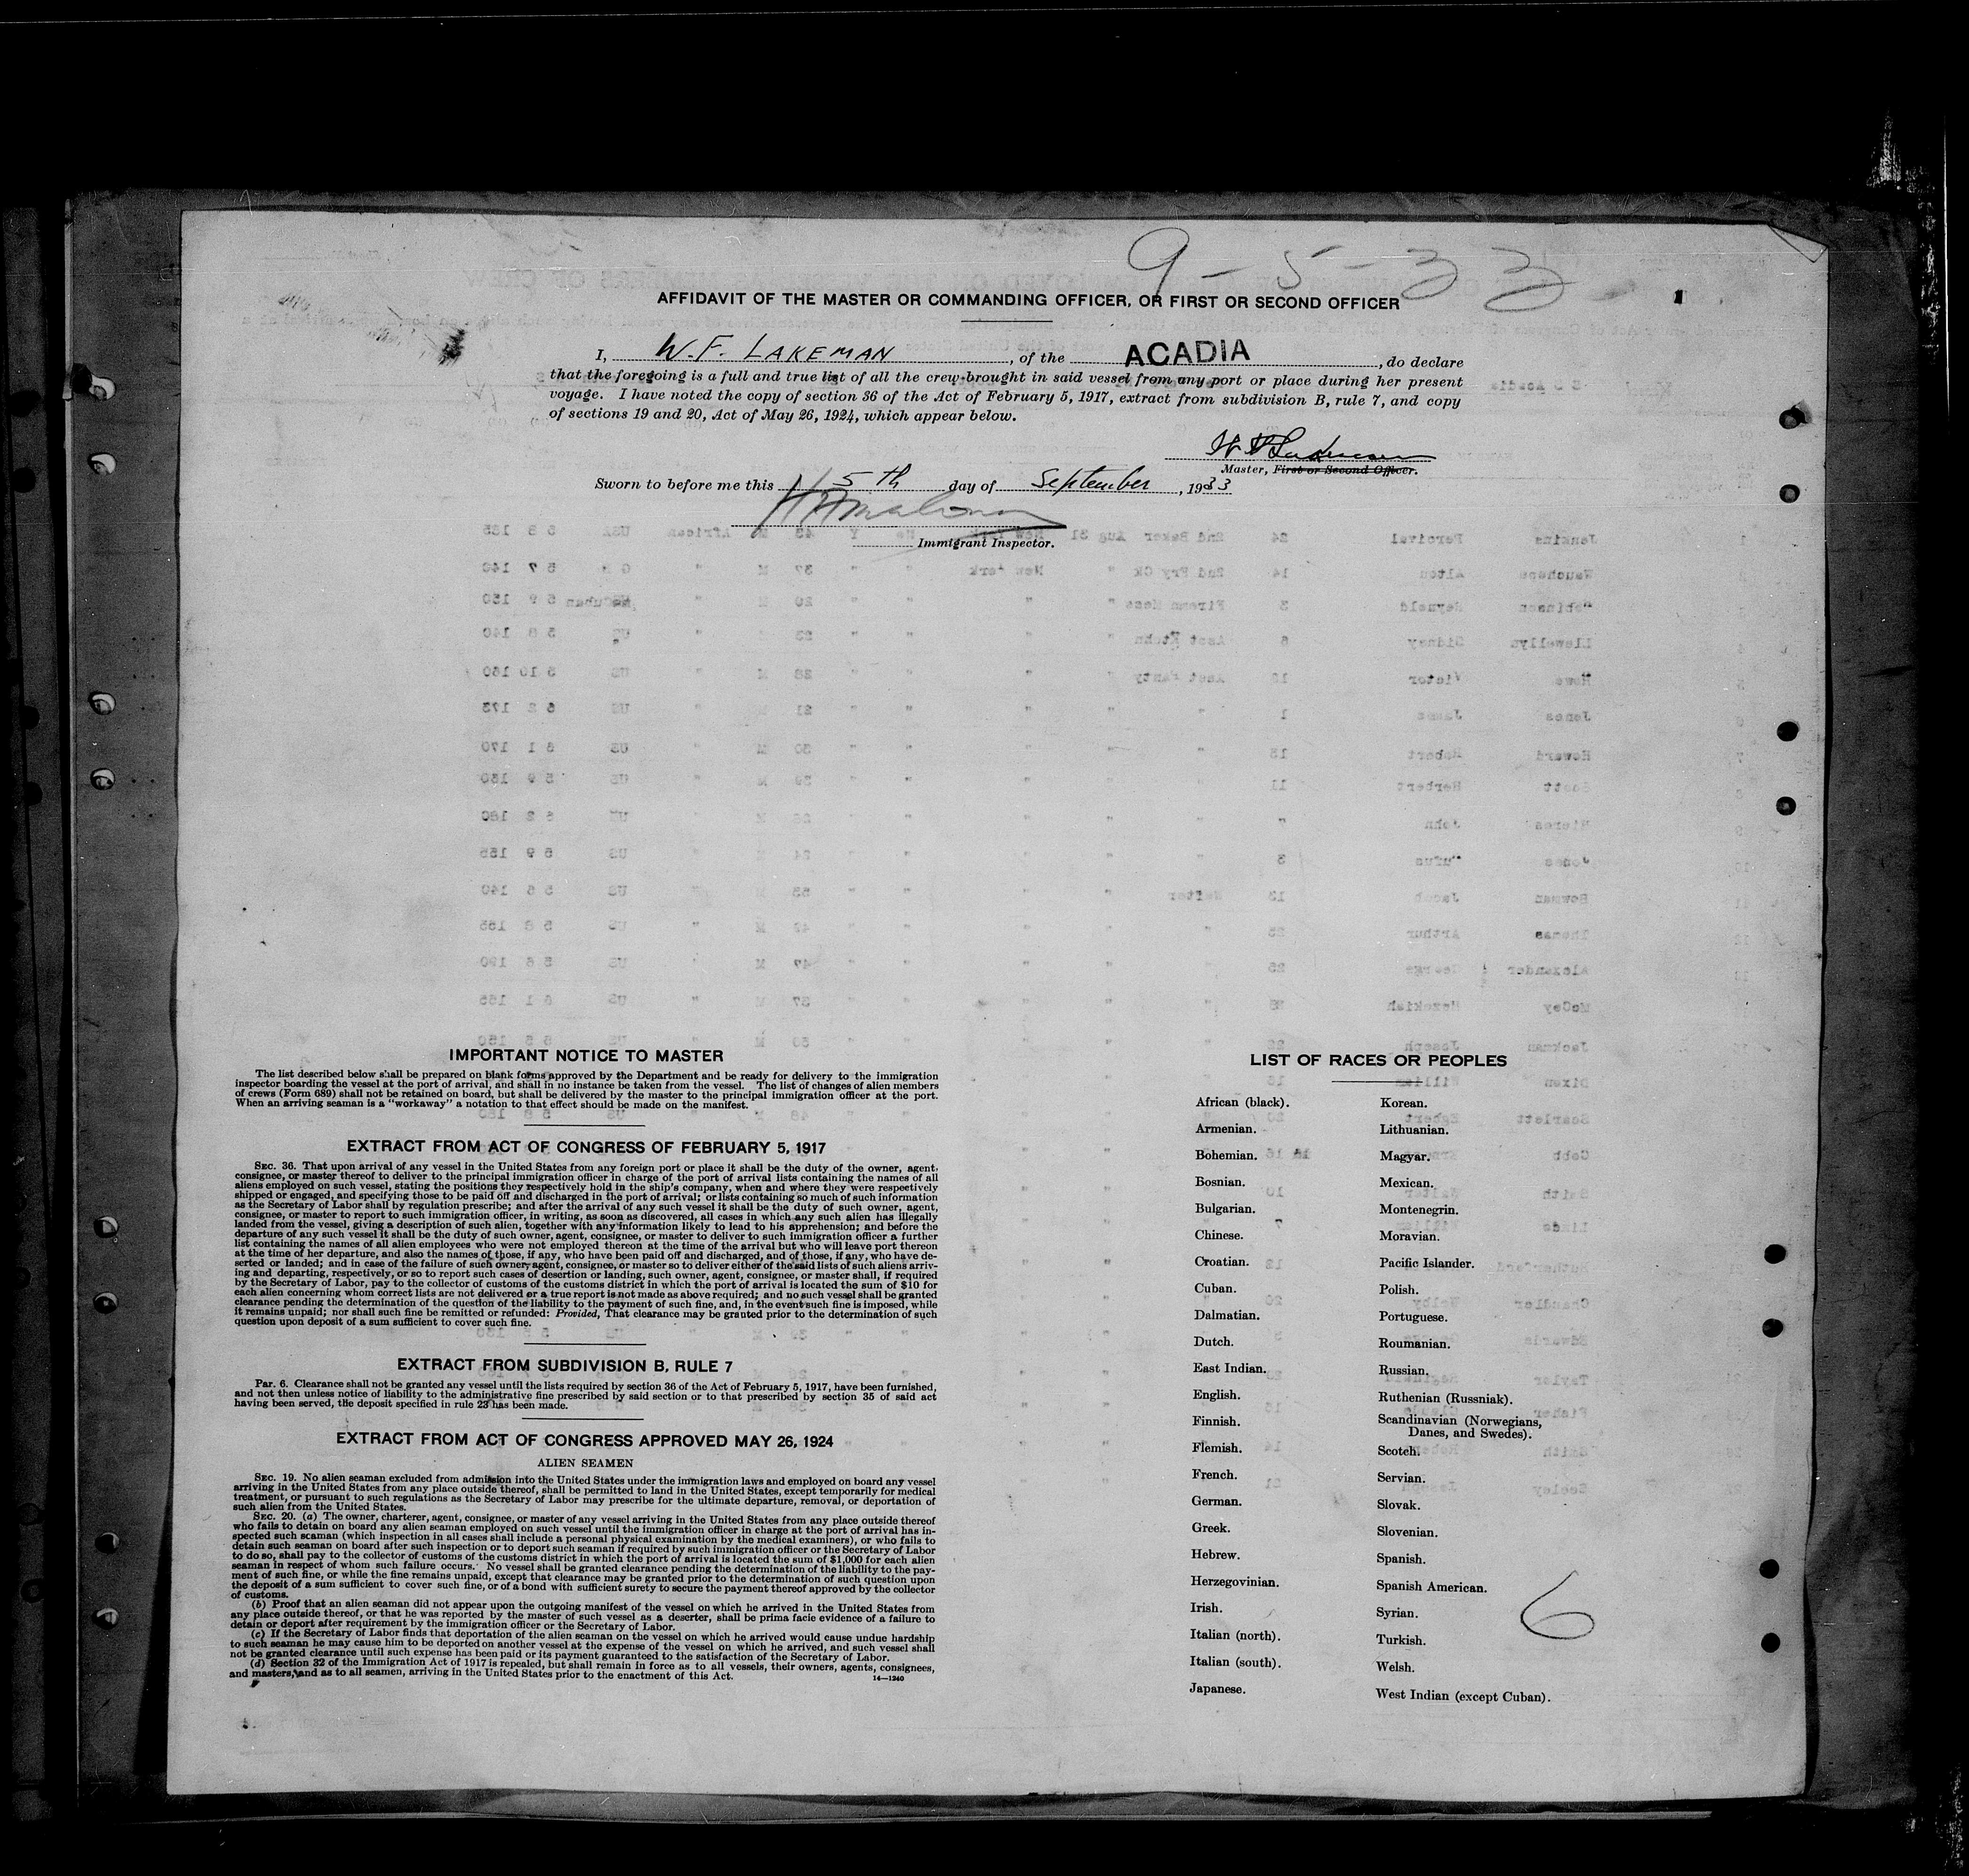 9-5-33
AFFIDAVIT OF THE MASTER OR COMMANDING OFFICER, OR FIRST OR SECOND OFFICER
1
I, W.F. LAKEMAN, of the ACADIA, do declare
that the foregoing is a full and true list of all the crew brought in said vessel from any port or place during her present
voyage. I have noted the copy of section 36 of the Act of February 5, 1917, extract from subdivision B, rule 7, and copy
of sections 19 and 20, Act of May 26, 1924, which appear below.
Master, First or Second Officer.
Sworn to before me this 5th day of September, 1933
Immigrant Inspector.
IMPORTANT NOTICE TO MASTER
The list described below shall be prepared on blank forms approved by the Department and be ready for delivery to the immigration
inspector boarding the vessel at the port of arrival, and shall in no instance be taken from the vessel. The list of changes of alien members
of crews (Form 689) shall not be retained on board, but shall be delivered by the master to the principal immigration officer at the port.
When an arriving seaman is a "workaway" a notation to that effect should be made on the manifest.
EXTRACT FROM ACT OF CONGRESS OF FEBRUARY 5, 1917
SEC. 36. That upon arrival of any vessel in the United States from any foreign port or place it shall be the duty of the owner, agent,
consignee, or master thereof to deliver to the principal immigration officer in charge of the port of arrival lists containing the names of all
aliens employed on such vessel, stating the positions they respectively hold in the ship's company, when and where they were respectively
shipped or engaged, and specifying those to be paid off and discharged in the port of arrival; or lists containing so much of such information
as the Secretary of Labor shall by regulation prescribe; and after the arrival of any such vessel it shall be the duty of such owner, agent,
consignee, or master to report to such immigration officer, in writing, as soon as discovered, all cases in which any such alien has illegally
landed from the vessel, giving a description of such alien, together with any information likely to lead to his apprehension; and before the
departure of any such vessel it shall be the duty of such owner, agent, consignee, or master to deliver to such immigration officer a further
list containing the names of all alien employees who were not employed thereon at the time of the arrival but who will leave port thereon
at the time of her departure, and also the names of those, if any, who have been paid off and discharged, and of those, if any, who have de-
serted or landed; and in case of the failure of such owner, agent, consignee, or master so to deliver either of the said lists of such aliens arriv-
ing and departing, respectively, or so to report such cases of desertion or landing, such owner, agent, consignee, or master shall, if required
by the Secretary of Labor, pay to the collector of customs of the customs district in which the port of arrival is located the sum of $10 for
each alien concerning whom correct lists are not delivered or a true report is not made as above required; and no such vessel shall be granted
clearance pending the determination of the question of the liability to the payment of such fine, and, in the event such fine is imposed, while
it remains unpaid; nor shall such fine be remitted or refunded: Provided, That clearance may be granted prior to the determination of such
question upon deposit of a sum sufficient to cover such fine.
EXTRACT FROM SUBDIVISION B, RULE 7
Par. 6. Clearance shall not be granted any vessel until the lists required by section 36 of the Act of February 5, 1917, have been furnished,
and not then unless notice of liability to the administrative fine prescribed by said section or to that prescribed by section 35 of said act
having been served, the deposit specified in rule 23 has been made.
EXTRACT FROM ACT OF CONGRESS APPROVED MAY 26, 1924
ALIEN SEAMEN
SEC. 19. No alien seaman excluded from admission into the United States under the immigration laws and employed on board any vessel
arriving in the United States from any place outside thereof, shall be permitted to land in the United States, except temporarily for medical
treatment, or pursuant to such regulations as the Secretary of Labor may prescribe for the ultimate departure, removal, or deportation of
such alien from the United States.
SEC. 20. (a) The owner, charterer, agent, consignee, or master of any vessel arriving in the United States from any place outside thereof
who fails to detain on board any alien seaman employed on such vessel until the immigration officer in charge at the port of arrival has in-
spected such seaman (which inspection in all cases shall include a personal physical examination by the medical examiners), or who fails to
detain such seaman on board after such inspection or to deport such seaman if required by such immigration officer or the Secretary of Labor
to do so, shall pay to the collector of customs of the customs district in which the port of arrival is located the sum of $1,000 for each alien
seaman in respect of whom such failure occurs. No vessel shall be granted clearance pending the determination of the liability to the pay-
ment of such fine, or while the fine remains unpaid, except that clearance may be granted prior to the determination of such question upon
the deposit of a sum sufficient to cover such fine, or of a bond with sufficient surety to secure the payment thereof approved by the collector
of customs.
(b) Proof that an alien seaman did not appear upon the outgoing manifest of the vessel on which he arrived in the United States from
any place outside thereof, or that he was reported by the master of such vessel as a deserter, shall be prima facie evidence of a failure to
detain or deport after requirement by the immigration officer or the Secretary of Labor.
(c) If the Secretary of Labor finds that deportation of the alien seaman on the vessel on which he arrived would cause undue hardship
to such seaman he may cause him to be deported on another vessel at the expense of the vessel on which he arrived, and such vessel shall
not be granted clearance until such expense has been paid or its payment guaranteed to the satisfaction of the Secretary of Labor.
(d) Section 32 of the Immigration Act of 1917 is repealed, but shall remain in force as to all vessels, their owners, agents, consignees,
and masters, and as to all seamen, arriving in the United States prior to the enactment of this Act.
14—1240
LIST OF RACES OR PEOPLES
African (black).
Armenian.
Bohemian.
Bosnian.
Bulgarian.
Chinese.
Croatian.
Cuban.
Dalmatian.
Dutch.
East Indian.
English.
Finnish.
Flemish.
French.
German.
Greek.
Hebrew.
Herzegovinian.
Irish.
Italian (north).
Italian (south).
Japanese.
Korean.
Lithuanian.
Magyar.
Mexican.
Montenegrin.
Moravian.
Pacific Islander.
Polish.
Portuguese.
Roumanian.
Russian.
Ruthenian (Russniak).
Scandinavian (Norwegians,
Danes, and Swedes).
Scotch.
Servian.
Slovak.
Slovenian.
Spanish.
Spanish American.
Syrian.
Turkish.
Welsh.
West Indian (except Cuban).
6